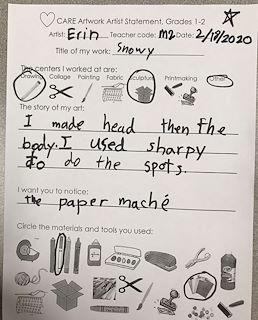 CARE Artwork Artist Statement, Grades 1-2
Artist: Erin Teacher code: m2 Date: 2/18/2020
Title of my work: Snowy
The centers I worked at are:
Drawing Collage Painting Fabric Sculpture Printmaking Other
The story of my art:
I made head then the
body. I used sharpy
to do the spots.
I want you to notice:
the paper maché
Circle the materials and tools you used: